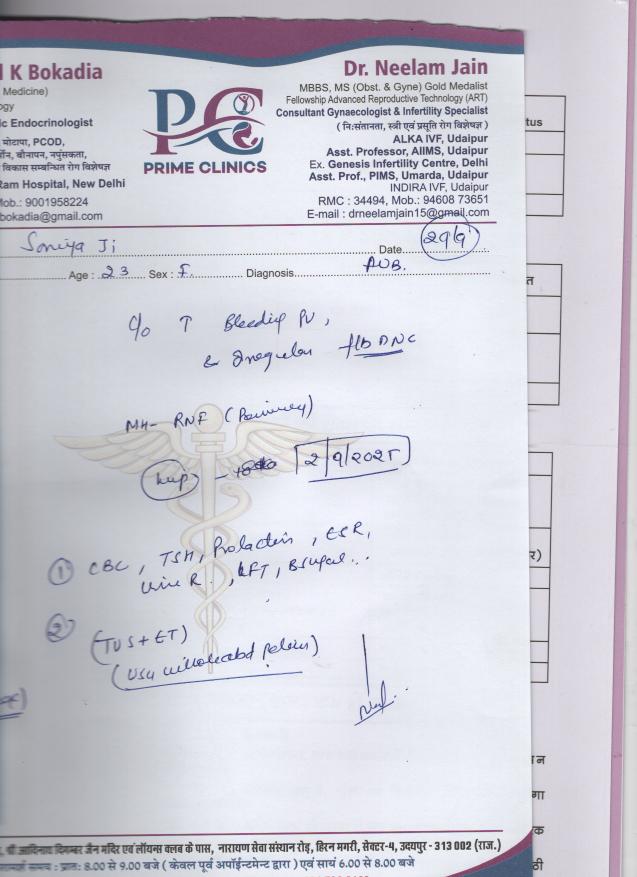 l K Bokadia
Medicine)
ogy
ic Endocrinologist
मोटापा, PCOD,
बौनापन, नपुंसकता,
विकास सम्बन्धित रोग विशेषज्ञ
Ram Hospital, New Delhi
Mob.: 9001958224
bokadia@gmail.com
PC
PRIME CLINICS
Dr. Neelam Jain
MBBS, MS (Obst. & Gyne) Gold Medalist
Fellowship Advanced Reproductive Technology (ART)
Consultant Gynaecologist & Infertility Specialist
( नि:संतानता, स्त्री एवं प्रसूति रोग विशेषज्ञ )
ALKA IVF, Udaipur
Asst. Professor, AIIMS, Udaipur
Ex. Genesis Infertility Centre, Delhi
Asst. Prof., PIMS, Umarda, Udaipur
INDIRA IVF, Udaipur
RMC : 34494, Mob.: 94608 73651
E-mail : drneelamjain15@gmail.com
Soniya Ji Date 29/9
Age : 23 Sex : F Diagnosis AUB.
c/o ↑ Bleeding PV,
& Irregular H/O DNC
MH- RNF
LMP - 2/9/2025
① CBC, TSH, Prolactin, ESR,
Urine R., LFT, BSugar...
② (TVS + ET)
(USG whole abd pelvis)
श्री आदिनाथ दिगम्बर जैन मंदिर एवं लॉयन्स क्लब के पास, नारायण सेवा संस्थान रोड़, हिरन मगरी, सेक्टर-4, उदयपुर - 313 002 (राज.)
समय : प्रात: 8.00 से 9.00 बजे ( केवल पूर्व अपॉईन्टमेन्ट द्वारा ) एवं सायं 6.00 से 8.00 बजे
tus
त
र)
ान
गा
क
ठी